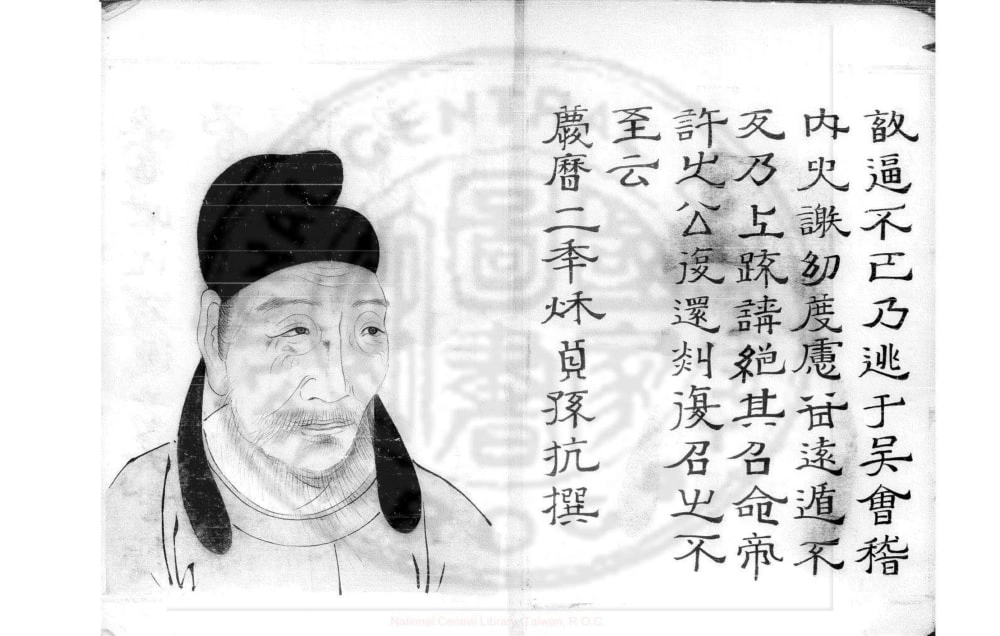 敦逼不已乃逃于吴會稽
内史謝幼度慮遠遁不
反乃上疏請絕其召命帝
許之公復還剡復召之不
至云
慶曆二秊秌貞孫抗撰
National Central Library, Taiwan, R.O.C.